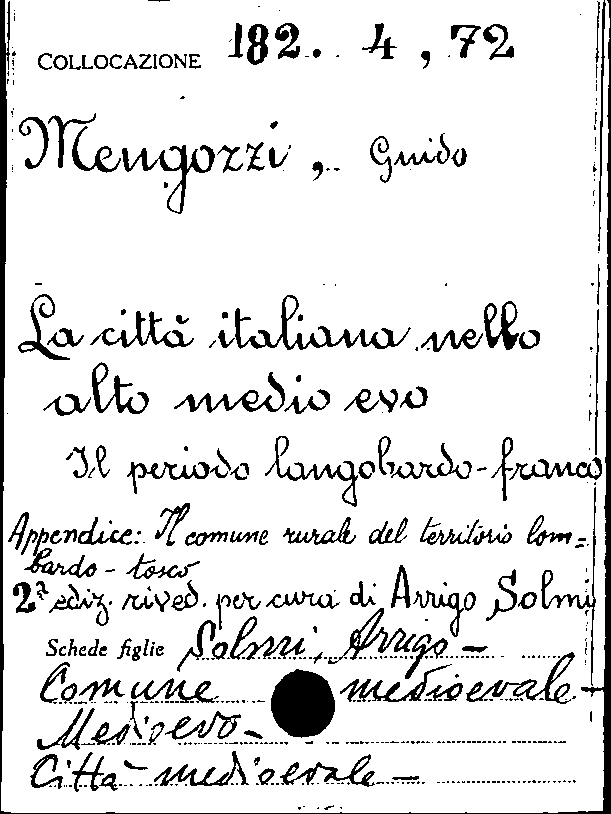 COLLOCAZIONE 182. 4, 72
Mengozzi, Guido
La città italiana nello
alto medio evo
Il periodo langobardo-franco
Appendice: Il comune rurale del territorio lom=
bardo-tosco
2ª ediz. rived. per cura di Arrigo Solmi
Schede figlie Solmi, Arrigo -
Comune medioevale -
Medioevo -
Città medioevale -